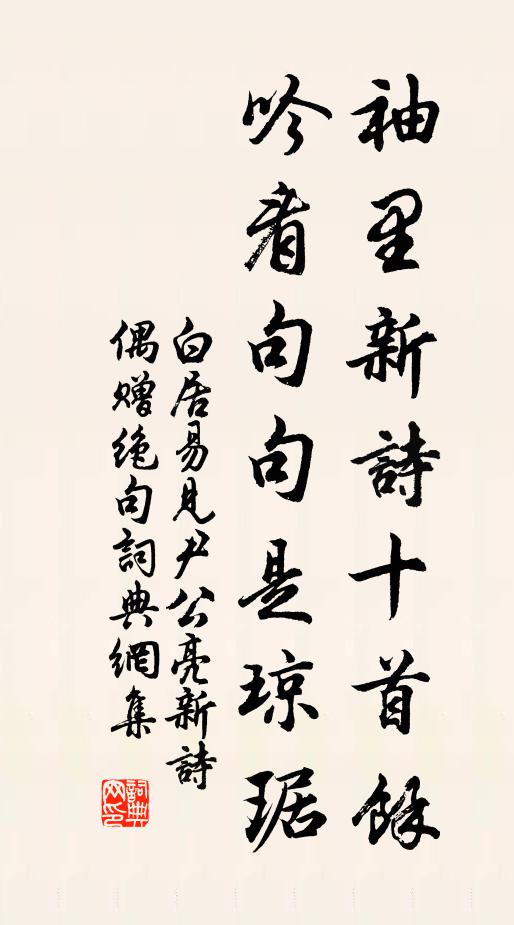 袖里新詩十首餘
吟看句句是琼琚
白居易見尹公亮新詩
偶贈绝句詞典網集
詞典网印